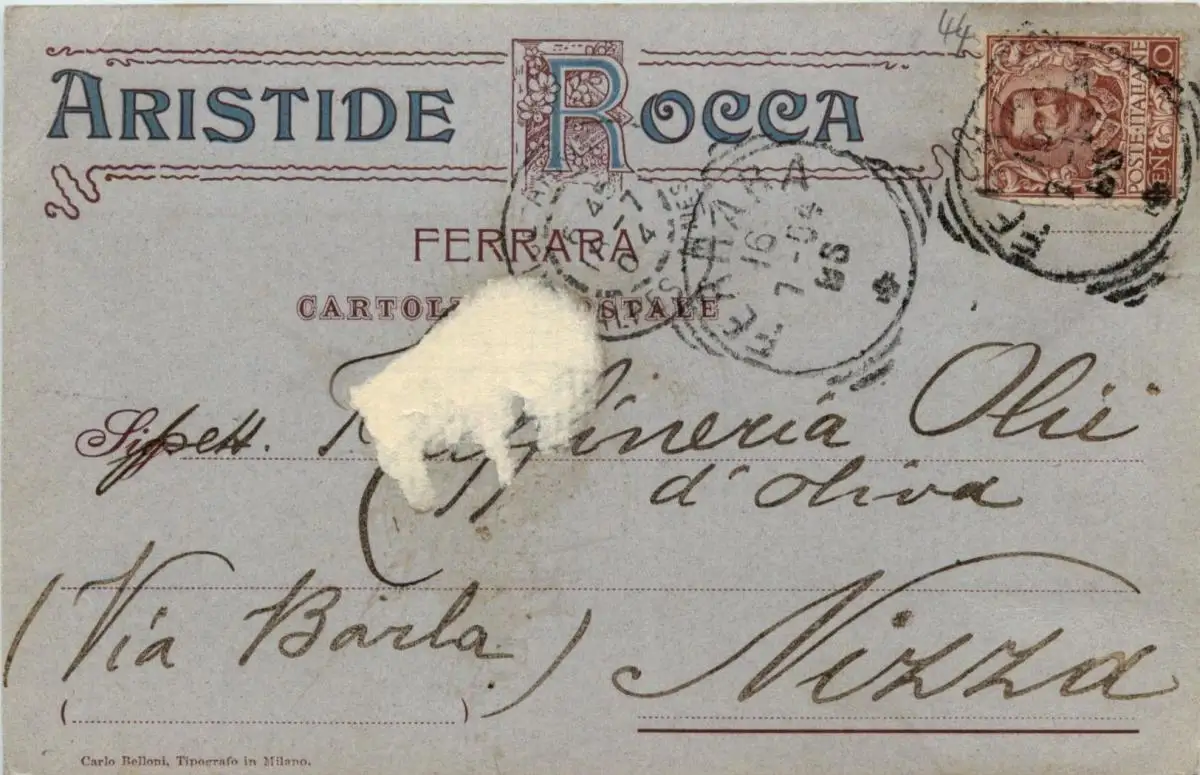 44
ARISTIDE ROCCA
POSTE·ITALIANE
FERRARA
FERRARA
16
7-04
CARTOL STALE
Spett. ffineria Olii
d'oliva
(Via Barla)
Nizza
Carlo Belloni, Tipografo in Milano.